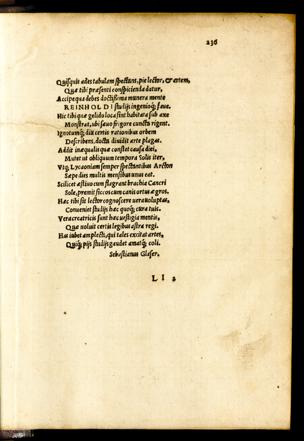 236
Quisquis ades tabulam spectans, pie lector, & artem,
Quæ tibi præsenti conspicienda datur,
Accipe qua debes doctissima munera mente
REINHOLDI studijs ingenioq́; faue.
Hic tibi quæ gelido loca sint habitata sub axe
Monstrat, ubi sæuo frigore cuncta rigent.
Ignotumq́; diu certis rationibus orbem
Describens, docta diuidit arte plagas.
Addit inæqualis quæ constet causa diei,
Mutet ut obliquum tempora Solis iter,
Vtq́; Lycaoniam semper spectantibus Arcton
Sæpe dies multis mensibus unus eat.
Scilicet æstiuo cum flagrant brachia Cancri
Sole, premit siccos cum canis ortus agros.
Hæc tibi sit lector cognoscere uera uoluptas,
Conueniat studijs hæc quoq́; cura tuis.
Vera creatricis sunt hæc uestigia mentis,
Quæ uoluit certis legibus astra regi.
Has iubet amplecti, qui tales excitat artes,
Quiq́; pijs studijs gaudet amatq́; coli.
Sebastianus Glaser.
L l 2